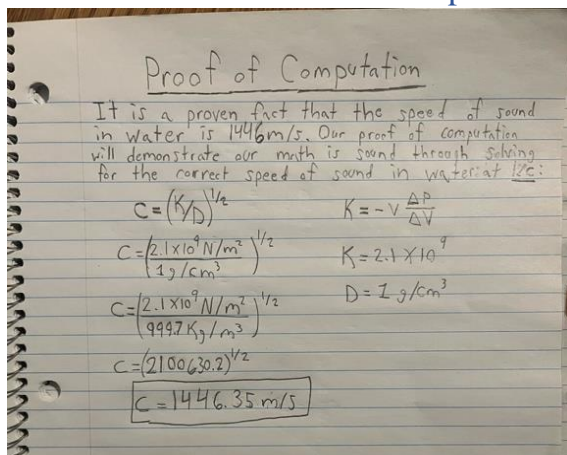 Proof of Computation
It is a proven fact that the speed of sound
in water is 1446m/s. Our proof of computation
will demonstrate our math is sound through solving
for the correct speed of sound in water: at 12°c:
C=(K/D)^1/2
K=-V ΔP/ΔV
C=(2.1x10^9 N/m^2 / 1g/cm^3)^1/2
K=2.1 X10^9
D=1 g/cm^3
C=(2.1x10^9 N/m^2 / 999.7 Kg/m^3)^1/2
C=(2100630.2)^1/2
C=1446.35 m/s